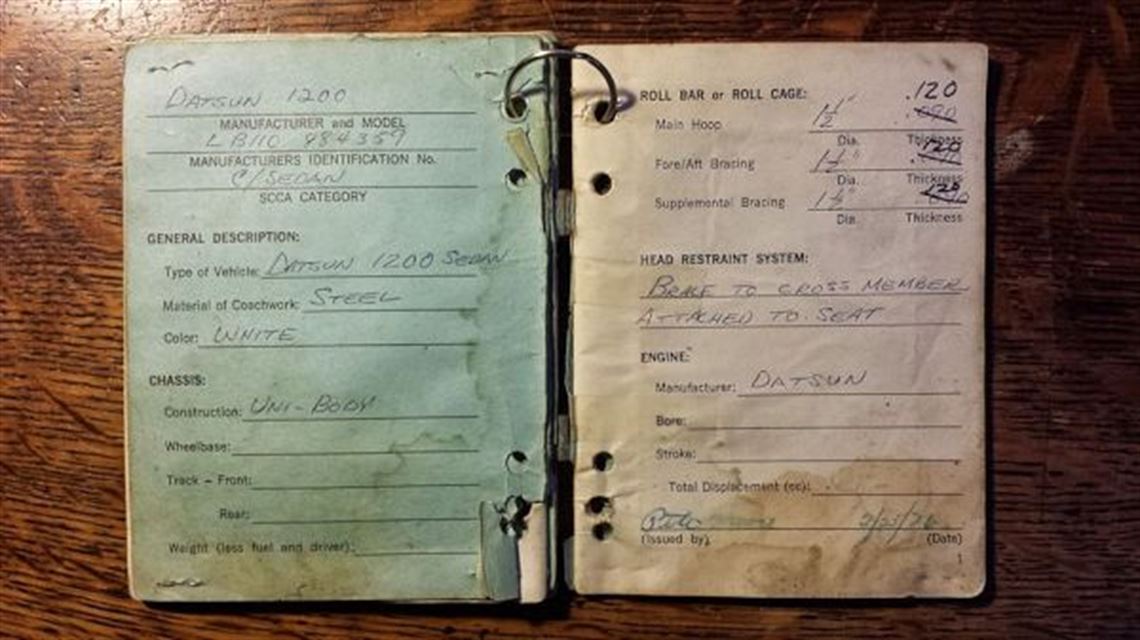 DATSUN 1200
MANUFACTURER and MODEL
LB110 984359
MANUFACTURERS IDENTIFICATION No.
C/SEDAN
SCCA CATEGORY
GENERAL DESCRIPTION:
Type of Vehicle: DATSUN 1200 SEDAN
Material of Coachwork: STEEL
Color: WHITE
CHASSIS:
Construction: UNI-BODY
Wheelbase:
Track - Front:
Rear:
Weight (less fuel and driver):
ROLL BAR or ROLL CAGE:
.120
Main Hoop 1½" .090
Dia. Thickness
Fore/Aft Bracing 1½" .120
Dia. Thickness
Supplemental Bracing 1½" .120
Dia. Thickness
HEAD RESTRAINT SYSTEM:
BRACE TO CROSS MEMBER
ATTACHED TO SEAT
ENGINE:
Manufacturer: DATSUN
Bore:
Stroke:
Total Displacement (cc):
Pete
(Issued by) (Date)
1